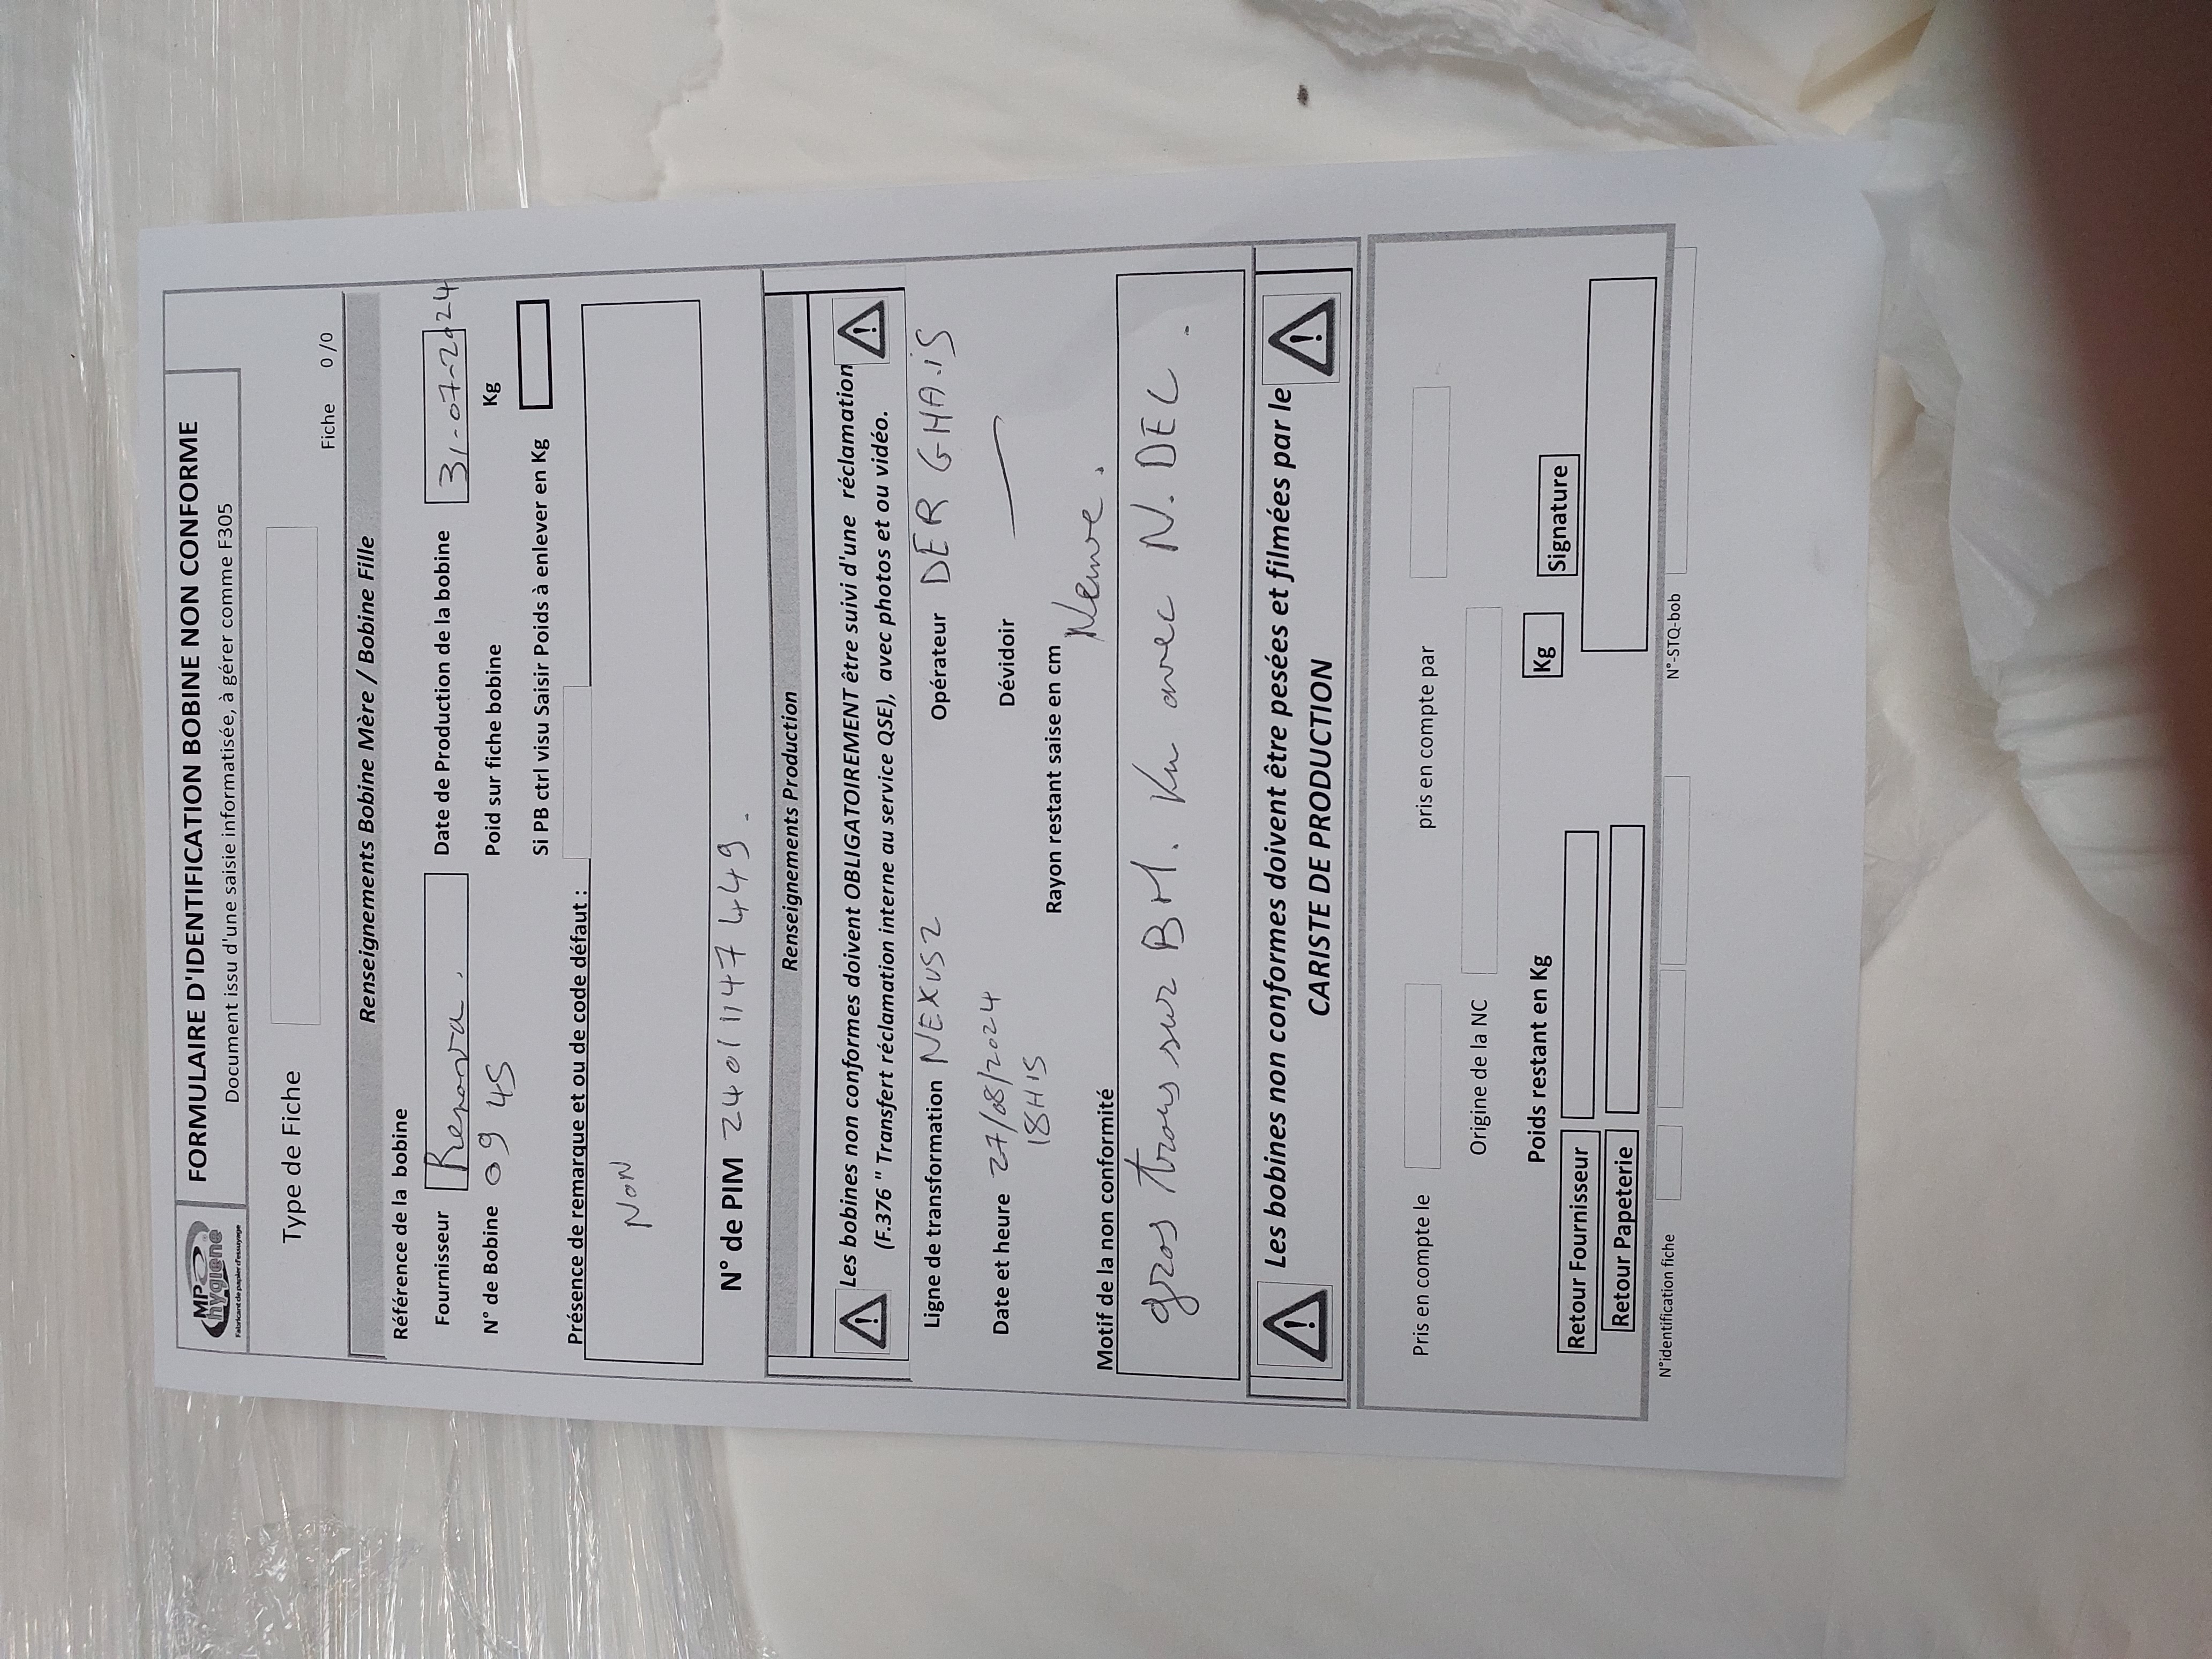 MP hygiene
Fabricant de papier d'essuyage
FORMULAIRE D'IDENTIFICATION BOBINE NON CONFORME
Document issu d'une saisie informatisée, à gérer comme F305
Type de Fiche
Fiche 0 /0
Renseignements Bobine Mère / Bobine Fille
Référence de la bobine
Fournisseur Renova. Date de Production de la bobine 31-07-2024
N° de Bobine 09 45 Poid sur fiche bobine Kg
Si PB ctrl visu Saisir Poids à enlever en Kg
Présence de remarque et ou de code défaut :
NON
N° de PIM 24011147449.
Renseignements Production
Les bobines non conformes doivent OBLIGATOIREMENT être suivi d'une réclamation
(F.376 " Transfert réclamation interne au service QSE), avec photos et ou vidéo.
Ligne de transformation NEXUS2 Opérateur DER GHAIS
Date et heure 27/08/2024 Dévidoir —
18H15
Rayon restant saise en cm Neuve.
Motif de la non conformité
gros trous sur BM. Vu avec N. DEC.
Les bobines non conformes doivent être pesées et filmées par le
CARISTE DE PRODUCTION
Pris en compte le pris en compte par
Origine de la NC
Poids restant en Kg Kg Signature
Retour Fournisseur
Retour Papeterie
N°identification fiche N°-STQ-bob